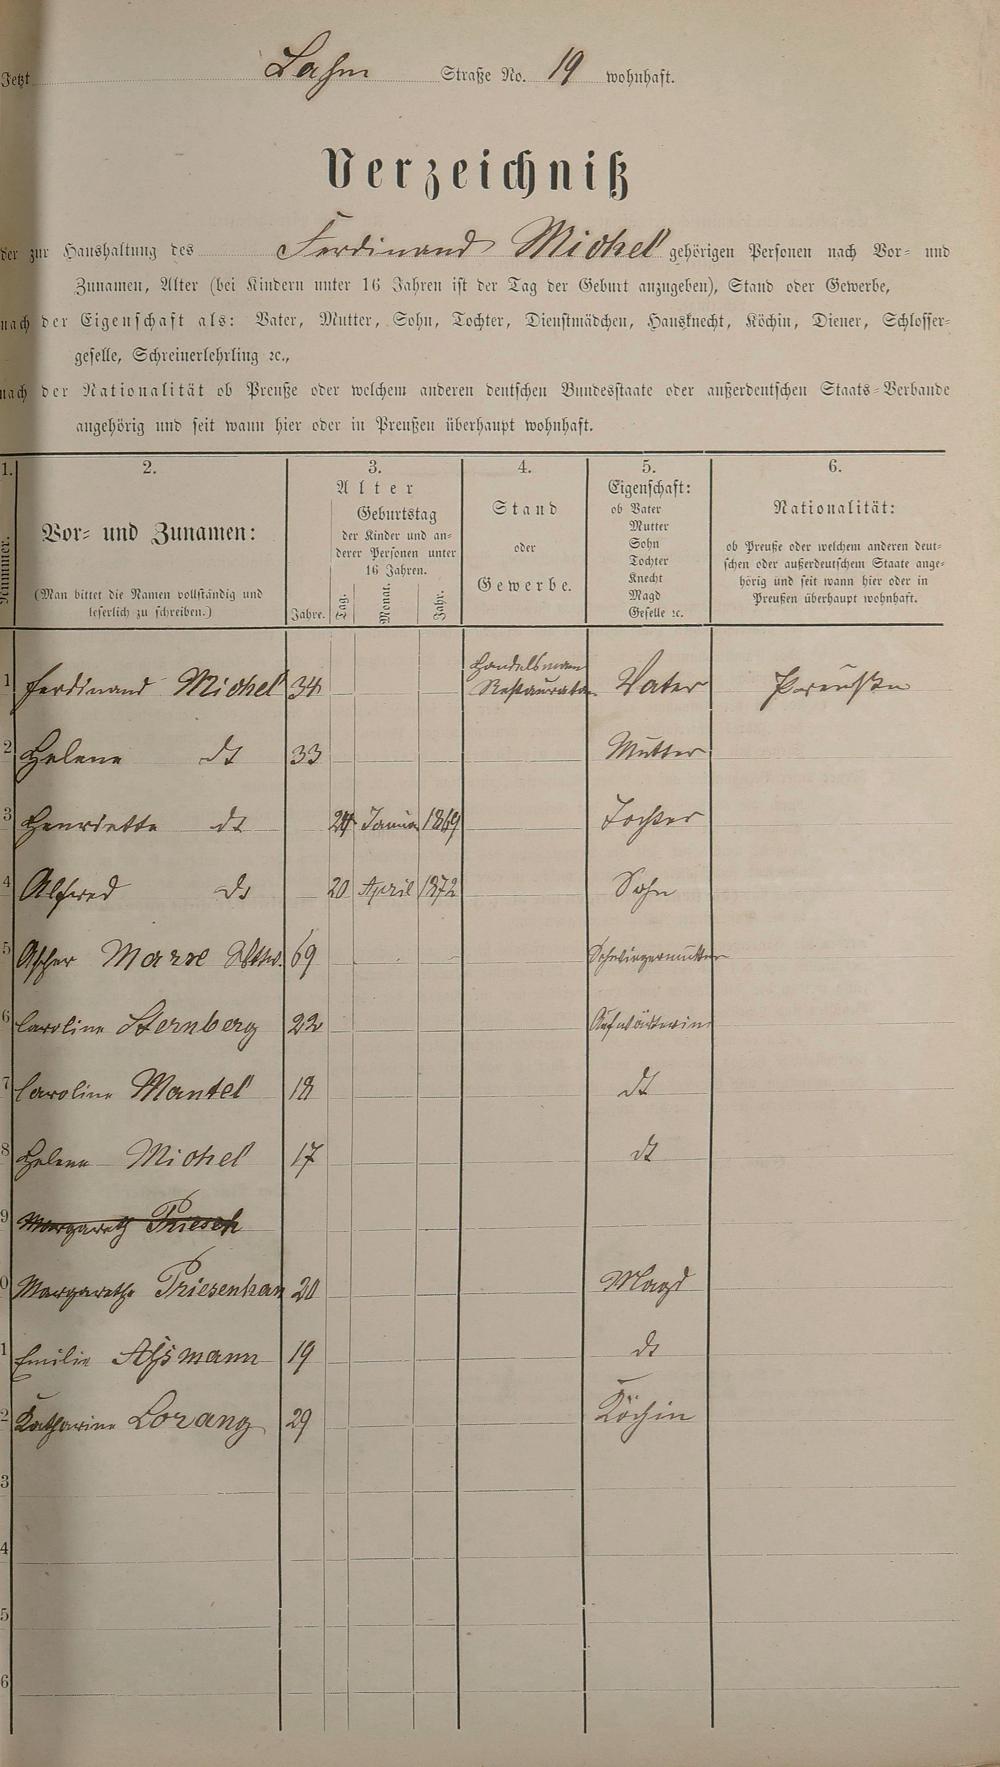 Jetzt Lahn Straße No. 19 wohnhaft.
Verzeichniß
der zur Haushaltung des Ferdinand Michel gehörigen Personen nach Vor- und
Zunamen, Alter (bei Kindern unter 16 Jahren ist der Tag der Geburt anzugeben), Stand oder Gewerbe,
nach der Eigenschaft als: Vater, Mutter, Sohn, Tochter, Dienstmädchen, Hausknecht, Köchin, Diener, Schlosser-
geselle, Schreinerlehrling ꝛc.,
nach der Nationalität ob Preuße oder welchem anderen deutschen Bundesstaate oder außerdeutschen Staats-Verbande
angehörig und seit wann hier oder in Preußen überhaupt wohnhaft.
1. 2. 3. 4. 5. 6.
Nummer.
Vor- und Zunamen:
(Man bittet die Namen vollständig und
leserlich zu schreiben.)
Alter
Jahre.
Geburtstag
der Kinder und an-
derer Personen unter
16 Jahren.
Tag. Monat. Jahr.
Stand
oder
Gewerbe.
Eigenschaft:
ob Vater
Mutter
Sohn
Tochter
Knecht
Magd
Geselle ꝛc.
Nationalität:
ob Preuße oder welchem anderen deut-
schen oder außerdeutschem Staate ange-
hörig und seit wann hier oder in
Preußen überhaupt wohnhaft.
1 Ferdinand Michel 34 Handelsmann Restaurateur Vater Preuße
2 Helene dt 33 Mutter
3 Henriette dt 24 Januar 1869 Tochter
4 Alfred dt 20 April 1872 Sohn
5 Ascher Marxe Wttw. 69 Schwiegermutter
6 Caroline Sternberg 22 Aufwärterin
7 Caroline Mantel 18 dt
8 Helene Michel 17 dt
9 Margareth Priesch
0 Margarethe Priesenhan 20 Magd
1 Emilie Aßmann 19 dt
2 Katharine Lorang 29 Köchin
3
4
5
6